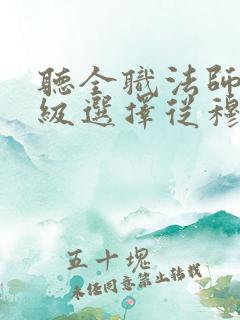 聽全職法師
級選擇從穆
五十塊
未经同意禁止转载